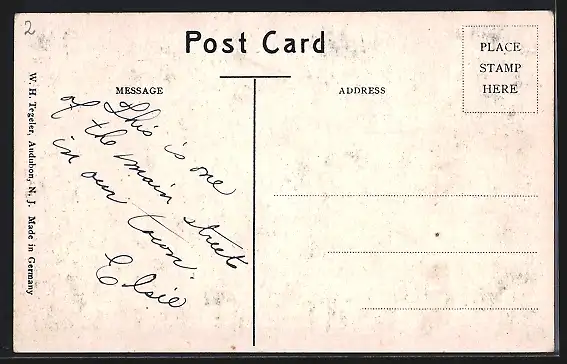 2
Post Card
PLACE
STAMP
HERE
MESSAGE
ADDRESS
This is one
of the main streets
in our town.
Elsie
W. H. Tegeler, Audubon, N. J. Made in Germany